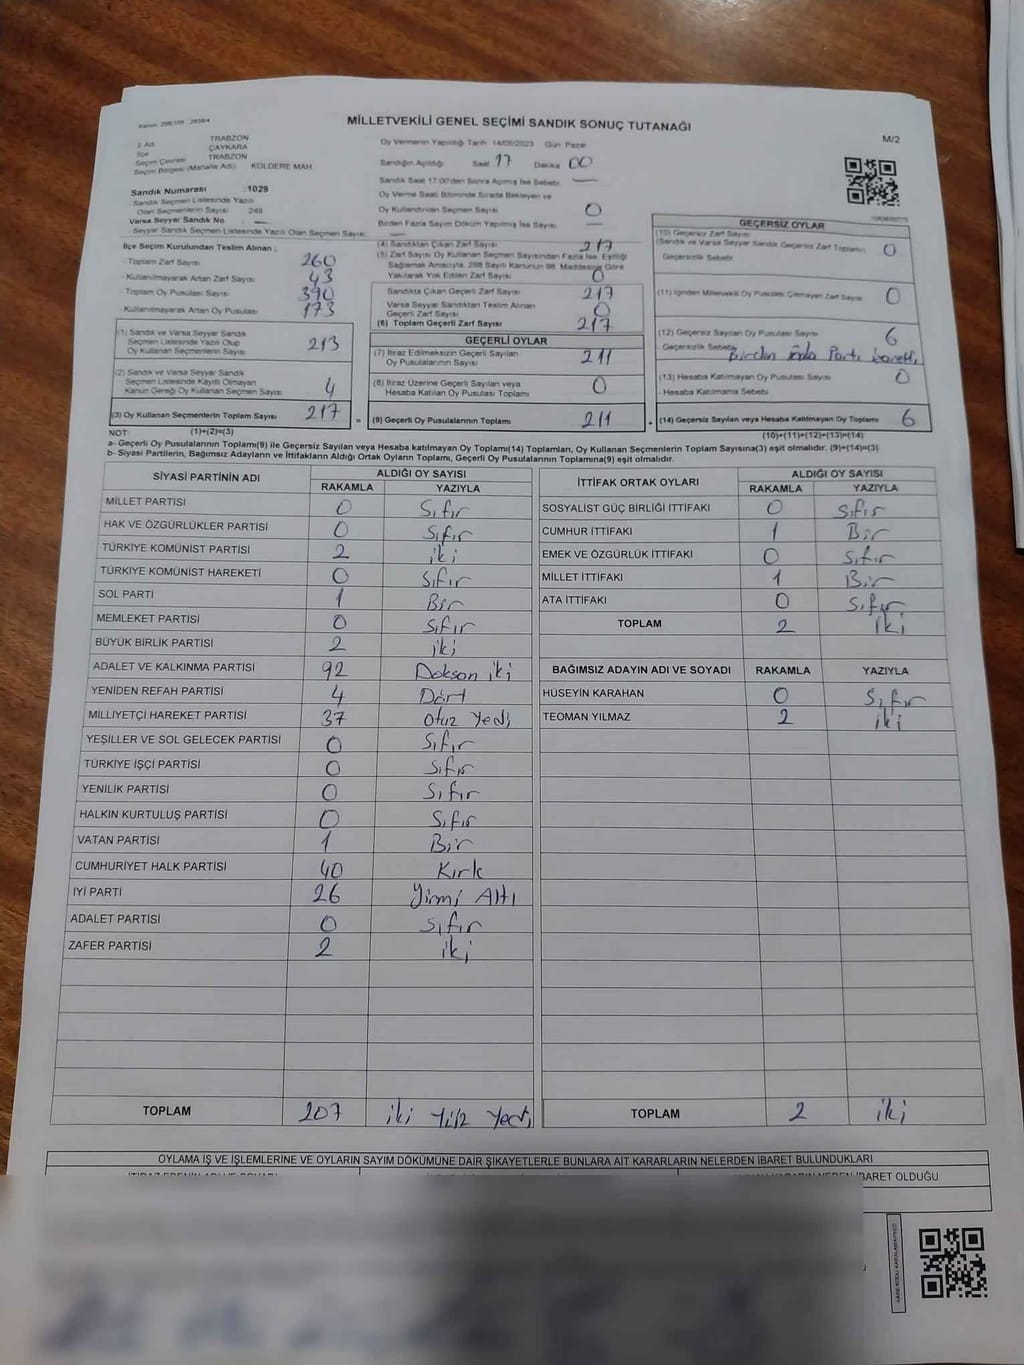 Kanun: 298/105 - 2839/4
MİLLETVEKİLİ GENEL SEÇİMİ SANDIK SONUÇ TUTANAĞI
M/2
İl Adı TRABZON
İlçe ÇAYKARA
Seçim Çevresi TRABZON
Seçim Bölgesi (Mahalle Adı) KÖLDERE MAH
Sandık Numarası : 1029
Sandık Seçmen Listesinde Yazılı
Olan Seçmenlerin Sayısı 249
Varsa Seyyar Sandık No —
Seyyar Sandık Seçmen Listesinde Yazılı Olan Seçmen Sayısı —
İlçe Seçim Kurulundan Teslim Alınan :
- Toplam Zarf Sayısı 260
- Kullanılmayarak Artan Zarf Sayısı 43
- Toplam Oy Pusulası Sayısı 390
- Kullanılmayarak Artan Oy Pusulası 173
(1) Sandık ve Varsa Seyyar Sandık
Seçmen Listesinde Yazılı Olup
Oy Kullanan Seçmenlerin Sayısı 213
(2) Sandık ve Varsa Seyyar Sandık
Seçmen Listesinde Kayıtlı Olmayan
Kanun Gereği Oy Kullanan Seçmen Sayısı 4
(3) Oy Kullanan Seçmenlerin Toplam Sayısı 217
Oy Vermenin Yapıldığı Tarih 14/05/2023 Gün Pazar
Sandığın Açıldığı Saat 17 Dakika 00
Sandık Saat 17:00'den Sonra Açılmış İse Sebebi —
Oy Verme Saati Bitiminde Sırada Bekleyen ve
Oy Kullandırılan Seçmen Sayısı 0
Birden Fazla Sayım Döküm Yapılmış İse Sayısı —
(4) Sandıktan Çıkan Zarf Sayısı 217
(5) Zarf Sayısı Oy Kullanan Seçmen Sayısından Fazla İse, Eşitliği
Sağlamak Amacıyla, 298 Sayılı Kanunun 98. Maddesine Göre
Yakılarak Yok Edilen Zarf Sayısı 0
Sandıkta Çıkan Geçerli Zarf Sayısı 217
Varsa Seyyar Sandıktan Teslim Alınan
Geçerli Zarf Sayısı 0
(6) Toplam Geçerli Zarf Sayısı 217
GEÇERLİ OYLAR
(7) İtiraz Edilmeksizin Geçerli Sayılan
Oy Pusulasının Sayısı 211
(8) İtiraz Üzerine Geçerli Sayılan veya
Hesaba Katılan Oy Pusulası Toplamı 0
= (9) Geçerli Oy Pusulalarının Toplamı 211
GEÇERSİZ OYLAR
(10) Geçersiz Zarf Sayısı
(Sandık ve Varsa Seyyar Sandık Geçersiz Zarf Toplamı) 0
Geçersizlik Sebebi
(11) İçinden Milletvekili Oy Pusulası Çıkmayan Zarf Sayısı 0
(12) Geçersiz Sayılan Oy Pusulası Sayısı 6
Geçersizlik Sebebi Birden fazla Parti işaretli
(13) Hesaba Katılmayan Oy Pusulası Sayısı 0
Hesaba Katılmama Sebebi
+ (14) Geçersiz Sayılan veya Hesaba Katılmayan Oy Toplamı 6
NOT: (1)+(2)=(3) (10)+(11)+(12)+(13)=(14)
a- Geçerli Oy Pusulalarının Toplamı(9) ile Geçersiz Sayılan veya Hesaba katılmayan Oy Toplamı(14) Toplamları, Oy Kullanan Seçmenlerin Toplam Sayısına(3) eşit olmalıdır. (9)+(14)=(3)
b- Siyasi Partilerin, Bağımsız Adayların ve İttifakların Aldığı Ortak Oyların Toplamı, Geçerli Oy Pusulalarının Toplamına(9) eşit olmalıdır.
SİYASİ PARTİNİN ADI ALDIĞI OY SAYISI
RAKAMLA YAZIYLA
MİLLET PARTİSİ 0 Sıfır
HAK VE ÖZGÜRLÜKLER PARTİSİ 0 Sıfır
TÜRKİYE KOMÜNİST PARTİSİ 2 iki
TÜRKİYE KOMÜNİST HAREKETİ 0 Sıfır
SOL PARTİ 1 Bir
MEMLEKET PARTİSİ 0 Sıfır
BÜYÜK BİRLİK PARTİSİ 2 iki
ADALET VE KALKINMA PARTİSİ 92 Doksan iki
YENİDEN REFAH PARTİSİ 4 Dört
MİLLİYETÇİ HAREKET PARTİSİ 37 Otuz Yedi
YEŞİLLER VE SOL GELECEK PARTİSİ 0 Sıfır
TÜRKİYE İŞÇİ PARTİSİ 0 Sıfır
YENİLİK PARTİSİ 0 Sıfır
HALKIN KURTULUŞ PARTİSİ 0 Sıfır
VATAN PARTİSİ 1 Bir
CUMHURİYET HALK PARTİSİ 40 Kırk
İYİ PARTİ 26 Yirmi Altı
ADALET PARTİSİ 0 Sıfır
ZAFER PARTİSİ 2 iki
TOPLAM 207 iki Yüz Yedi
İTTİFAK ORTAK OYLARI ALDIĞI OY SAYISI
RAKAMLA YAZIYLA
SOSYALİST GÜÇ BİRLİĞİ İTTİFAKI 0 Sıfır
CUMHUR İTTİFAKI 1 Bir
EMEK VE ÖZGÜRLÜK İTTİFAKI 0 Sıfır
MİLLET İTTİFAKI 1 Bir
ATA İTTİFAKI 0 Sıfır
TOPLAM 2 iki
BAĞIMSIZ ADAYIN ADI VE SOYADI RAKAMLA YAZIYLA
HÜSEYİN KARAHAN 0 Sıfır
TEOMAN YILMAZ 2 iki
TOPLAM 2 iki
OYLAMA İŞ VE İŞLEMLERİNE VE OYLARIN SAYIM DÖKÜMÜNE DAİR ŞİKAYETLERLE BUNLARA AİT KARARLARIN NELERDEN İBARET BULUNDUKLARI
İTİRAZ EDENİN ADI VE SOYADI
İBARET OLDUĞU